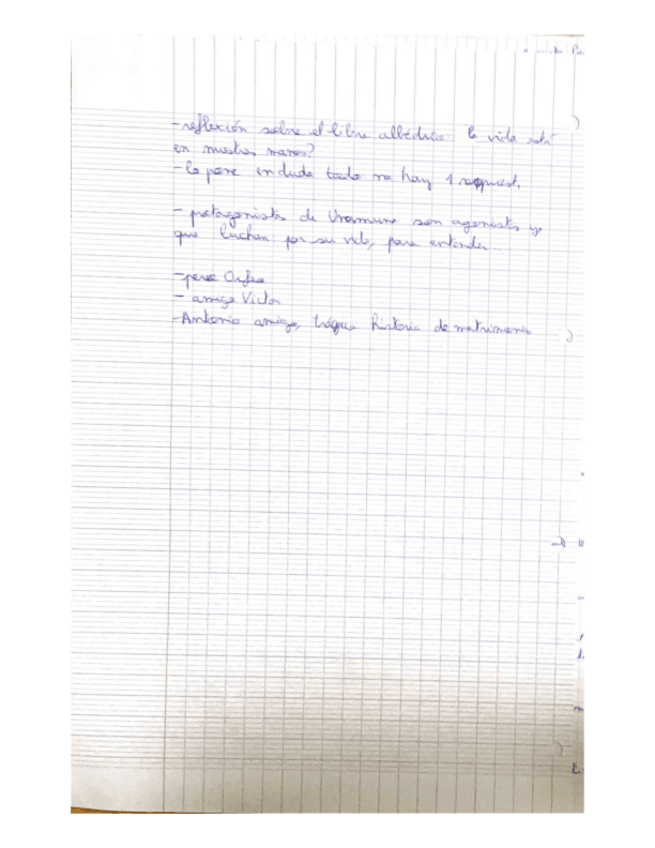 - reflexión sobre el libre albédrio: la vida está
en nuestras manos?
- lo pone en duda todo no hay 1 respuesta,
- protagonistas de Unamuno son agonistas ya
que luchan por su vida, para entender...
- perro Orfeo
- amigo Victor
- Antonio amigo, trágica historia de matrimonio